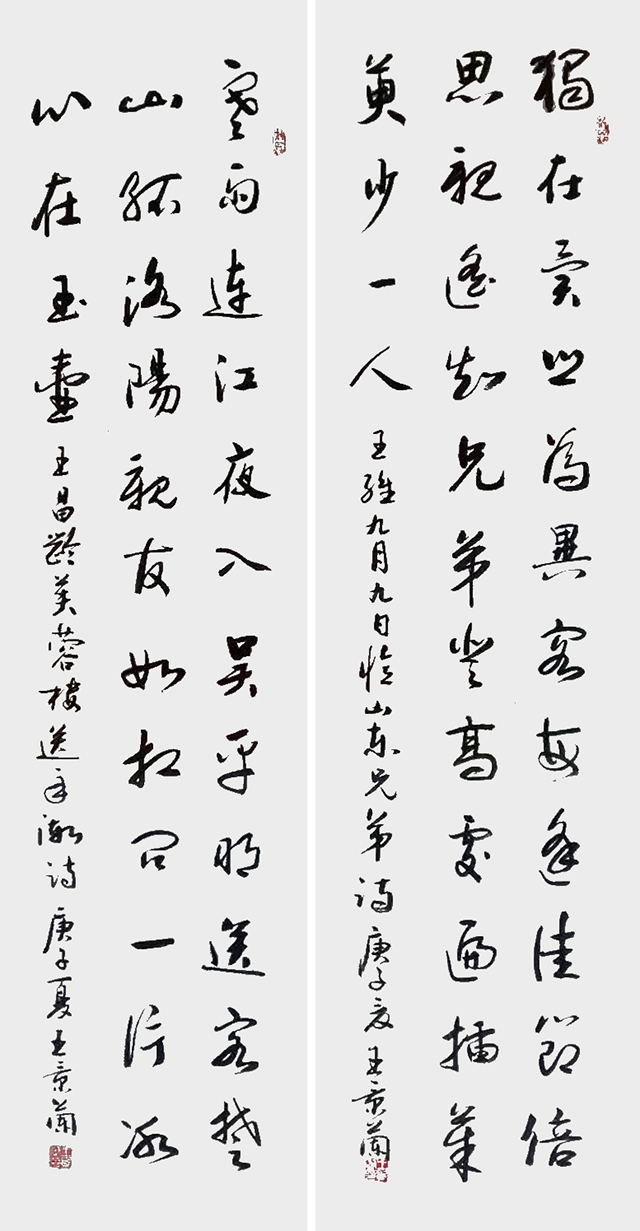 獨在異鄉為異客每逢佳節倍
思親遙知兄弟登高處遍插茱
萸少一人 王維九月九日憶山東兄弟詩 庚子夏 王景蘭
寒雨連江夜入吳平明送客楚
山孤洛陽親友如相問一片冰
心在玉壺 王昌齡芙蓉樓送辛漸詩 庚子夏王景蘭